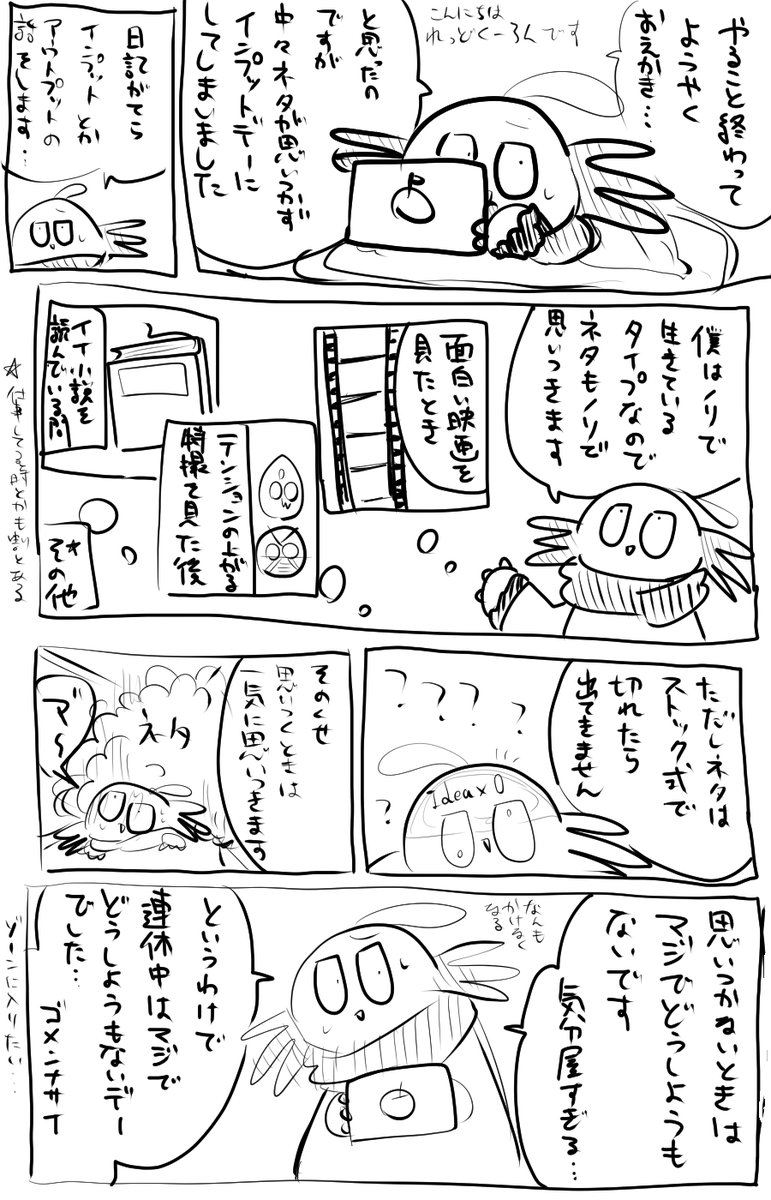 こんにちは
れっどくーろんです
やること終わって
ようやく
おえかき…
と思ったの
ですが
中々ネタが思いつかず
インプットデーに
してしまいました
日記がてら
インプットとか
アウトプットの
話をします…
僕はノリで
生きている
タイプなので
ネタもノリで
思いつきます
面白い映画を
見たとき
テンションの上がる
特撮を見た後
イイ小説を
読んでいる間
☆その他
☆仕事してる時とかも割とある
ただしネタは
ストック式で
切れたら
出てきません
????
?
Ideax0
そのくせ
思いつくときは
一気に思いつきます
ネタ
ア〜
思いつかないときは
マジでどうしようも
ないです
気分屋すぎる…
なんも
かけなく
なる
というわけで
連休中はマジで
どうしようもないデー
でした…
ゴメンナサイ
ゾーンに入りたい…